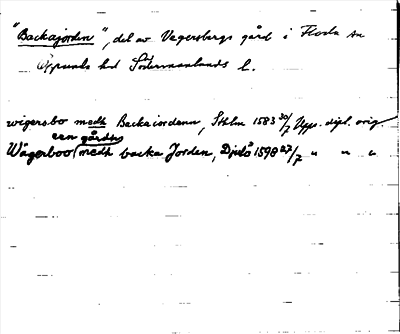 "Backajorden", del av Vagersbergs gård i Floda sn
Oppunda hd Södermanlands l.
wigersbo medh Backaiordenn, Sthlm 1583 30/7 Upps. dipl. orig.
een gårdh
Wågerboo medh backa Jorden, Djulö 1598 27/7 " " "